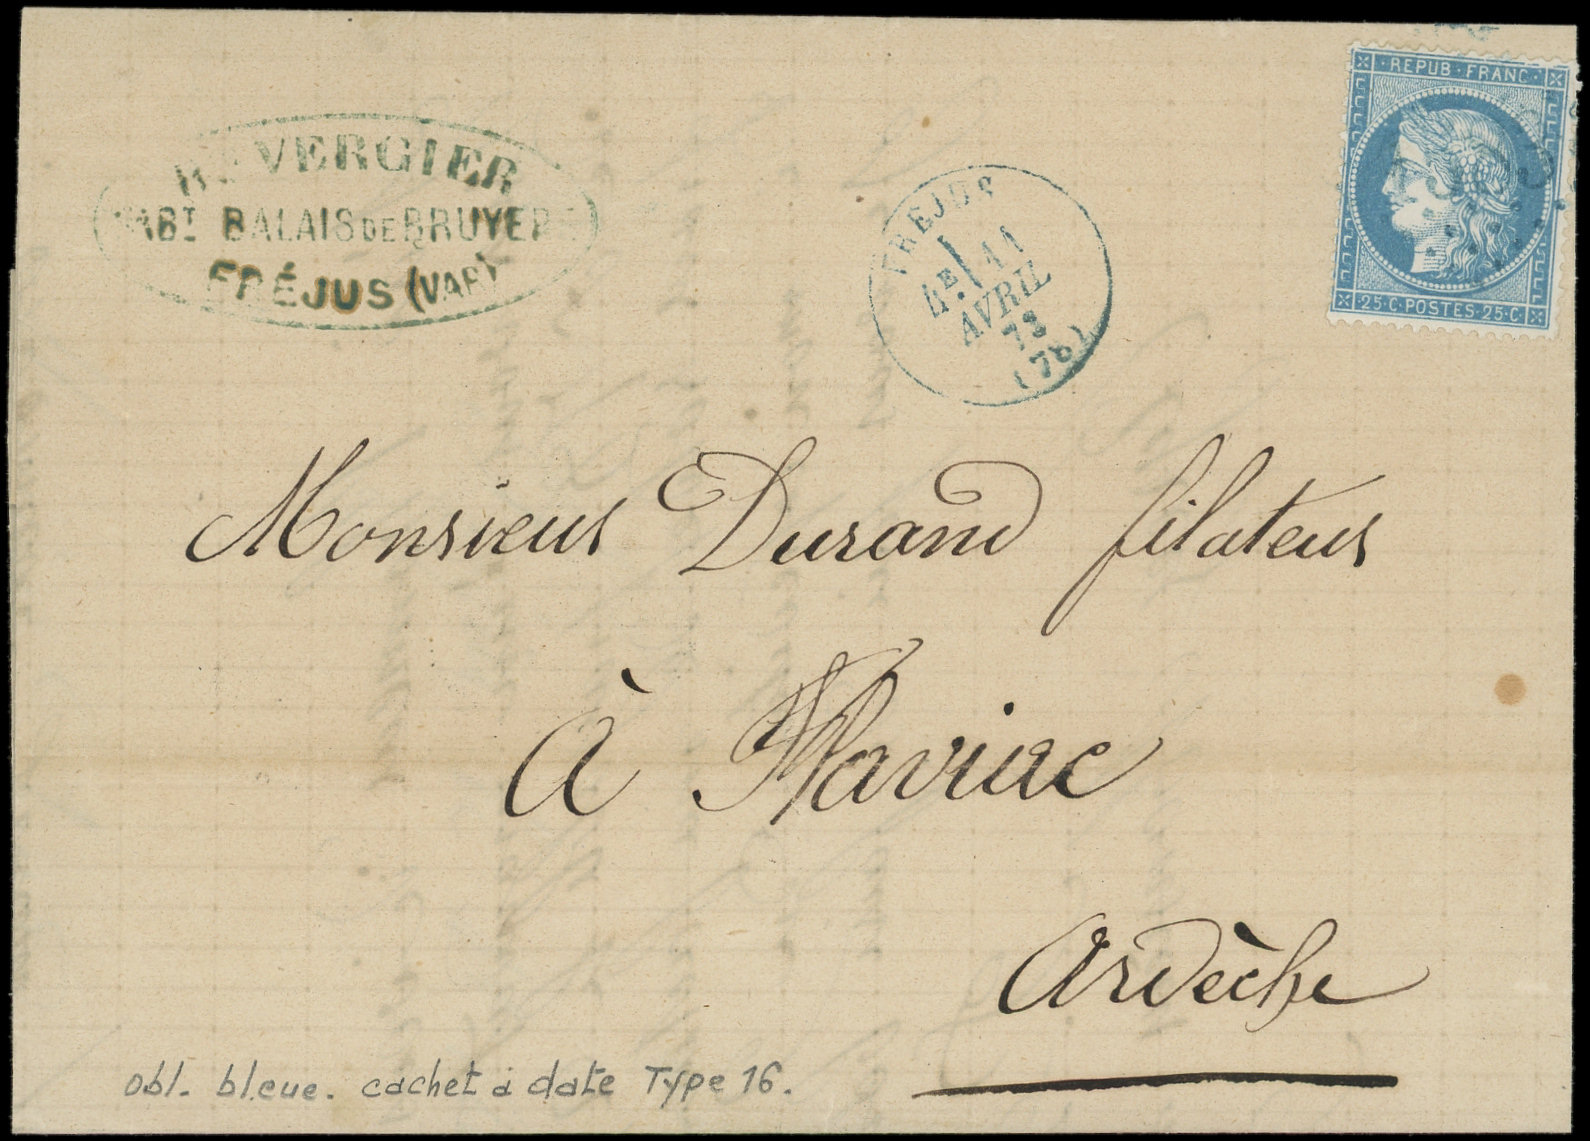 REPUB · FRANC ·
25 · C · POSTES · 25 · C ·
VERGIER
FABT BALAIS DE BRUYERE
FRÉJUS (VAR)
FREJUS
4E 11
AVRIL
73
(78)
Monsieur Durand filateur
à Flaviac
Ardèche
obl. bleue. cachet à date Type 16.